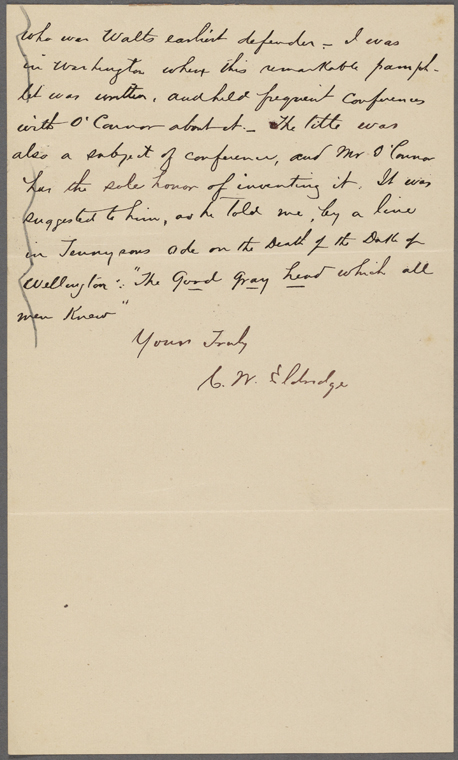 who was Walts earliest defender – I was
in Washington when this remarkable pamph-
let was written, and held frequent conferences
with O'Connor about it – The title was
also a subject of conference, and Mr O'Connor
has the sole honor of inventing it. It was
suggested to him, as he told me, by a line
in Tennysons Ode on the Death of the Duke of
Wellington: "The Good gray head which all
men Knew"
Yours Truly
C. W. Eldridge